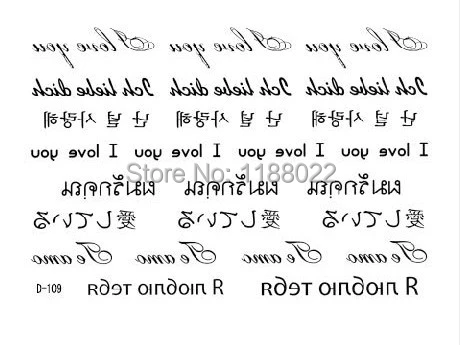 I love you I love you I love you
Ich liebe dich Ich liebe dich Ich liebe dich
난 널 사랑해 난 널 사랑해 난 널 사랑해
I love you I love you I love you I love you
Store No: 1188022
ผมรักคุณ ผมรักคุณ ผมรักคุณ
愛している 愛している 愛している
Te amo Te amo Te amo Te amo
D-109 Я люблю тебя Я люблю тебя